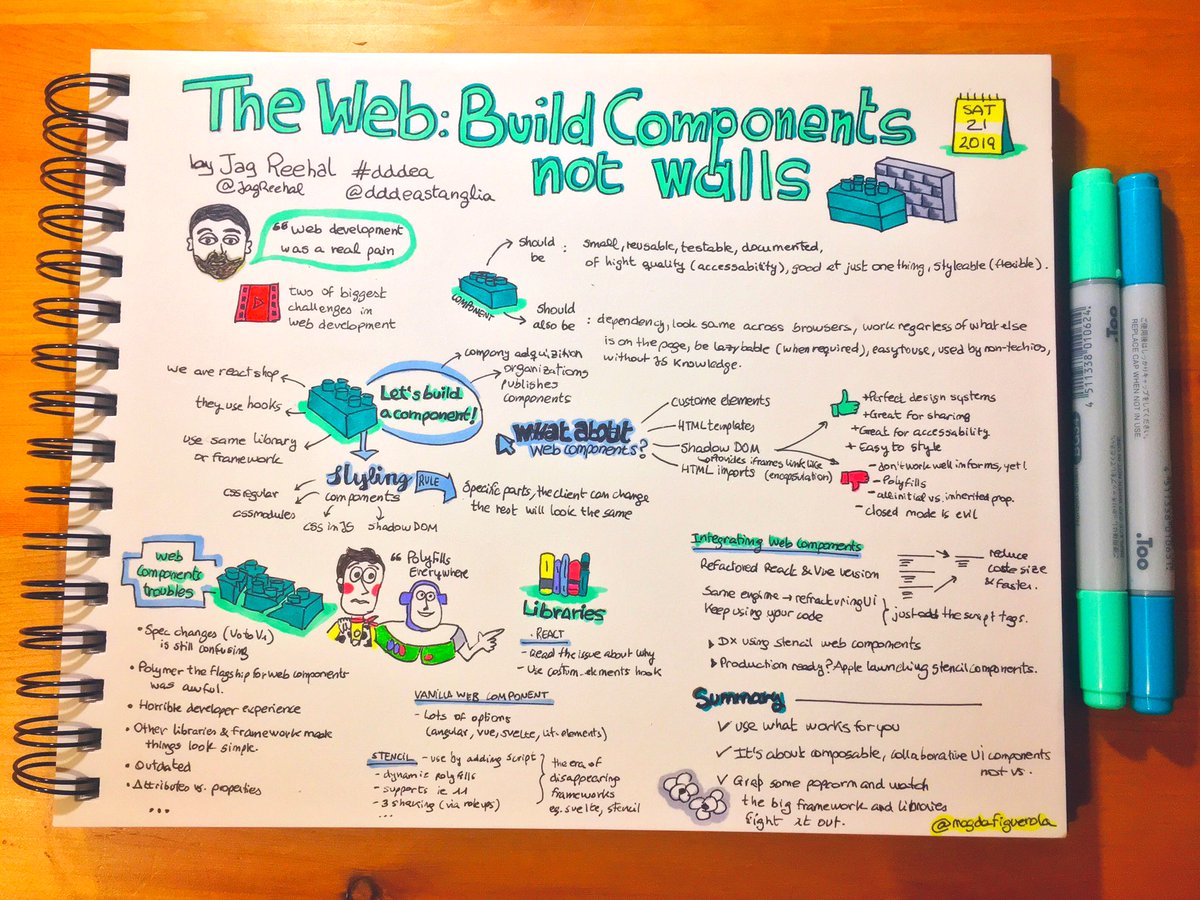 The Web: Build Components
not walls
SAT
21
2019
by Jag Reehal #dddea
@JagReehal @dddeastanglia
"web development
was a real pain
two of biggest
challenges in
web development
COMPONENT
should
be : small, reusable, testable, documented,
of hight quality (accessability), good at just one thing, styleable (flexible).
should
also be : dependency, look same across browsers, work regarless of what else
is on the page, be lazyable (when required), easy to use, used by non-techies,
without JS knowledge.
Let's build
a component!
company adquizition
organizations
publishes
components
we are react shop
they use hooks
use same library
or framework
styling
components
RULE
Specific parts, the client can change
the rest will look the same
css regular
css modules
css in JS
shadow DOM
What about
web components?
custome elements
HTML templates
Shadow DOM
Provides iframes link like
(encapsulation)
HTML imports
+Perfect design systems
+Great for sharing
+Great for accessability
+ Easy to style
- don't work well in forms, yet!
- Polyfills
- all initial vs. inherited prop.
- closed mode is evil
web
components
troubles
• Spec changes (V0 to V1)
is still confusing
• Polymer the flagship for web components
was awful.
• Horrible developer experience
• Other libraries & framework made
things look simple.
• Outdated
• Attributes vs. properties
...
"Polyfills
Everywhere
Libraries
. REACT
- Read the issue about why
- Use custom-elements hook
VANILLA WEB COMPONENT
- Lots of options
(angular, vue, svelte, lit-elements)
STENCIL - use by adding script
- dynamic polyfills
- supports ie 11
- 3 shaking (via rollups)
...
the era of
disappearing
frameworks
eg. svelte, stencil
Integrating Web Components
Refactored React & Vue version
reduce
code size
& faster.
Same engine → refracturing UI
Keep using your code
just add the script tags.
▸ DX using stencil web components
▸ Production ready? Apple launching stencil components.
Summary
✓ use what works for you
✓ It's about composable, collaborative UI components
not vs.
✓ Grap some popcorn and watch
the big framework and libraries
fight it out.
@magdafiguerola
4 511338 010624
REPLACE CAP WHEN NOT IN USE
.Too
.Too